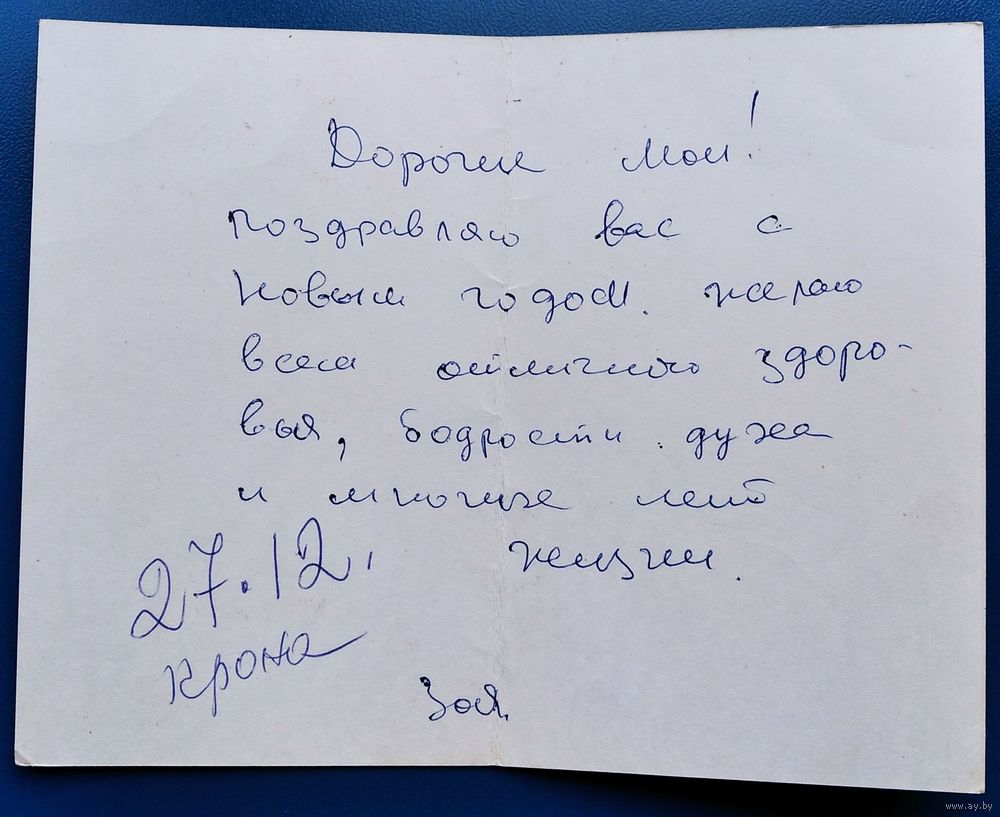 Дорогие мои!
поздравляю вас с
Новым годом. желаю
всем отличного здоро-
вья, бодрости духа
и многих лет
жизни.
27.12.
крона
Зоя.
www.ay.by